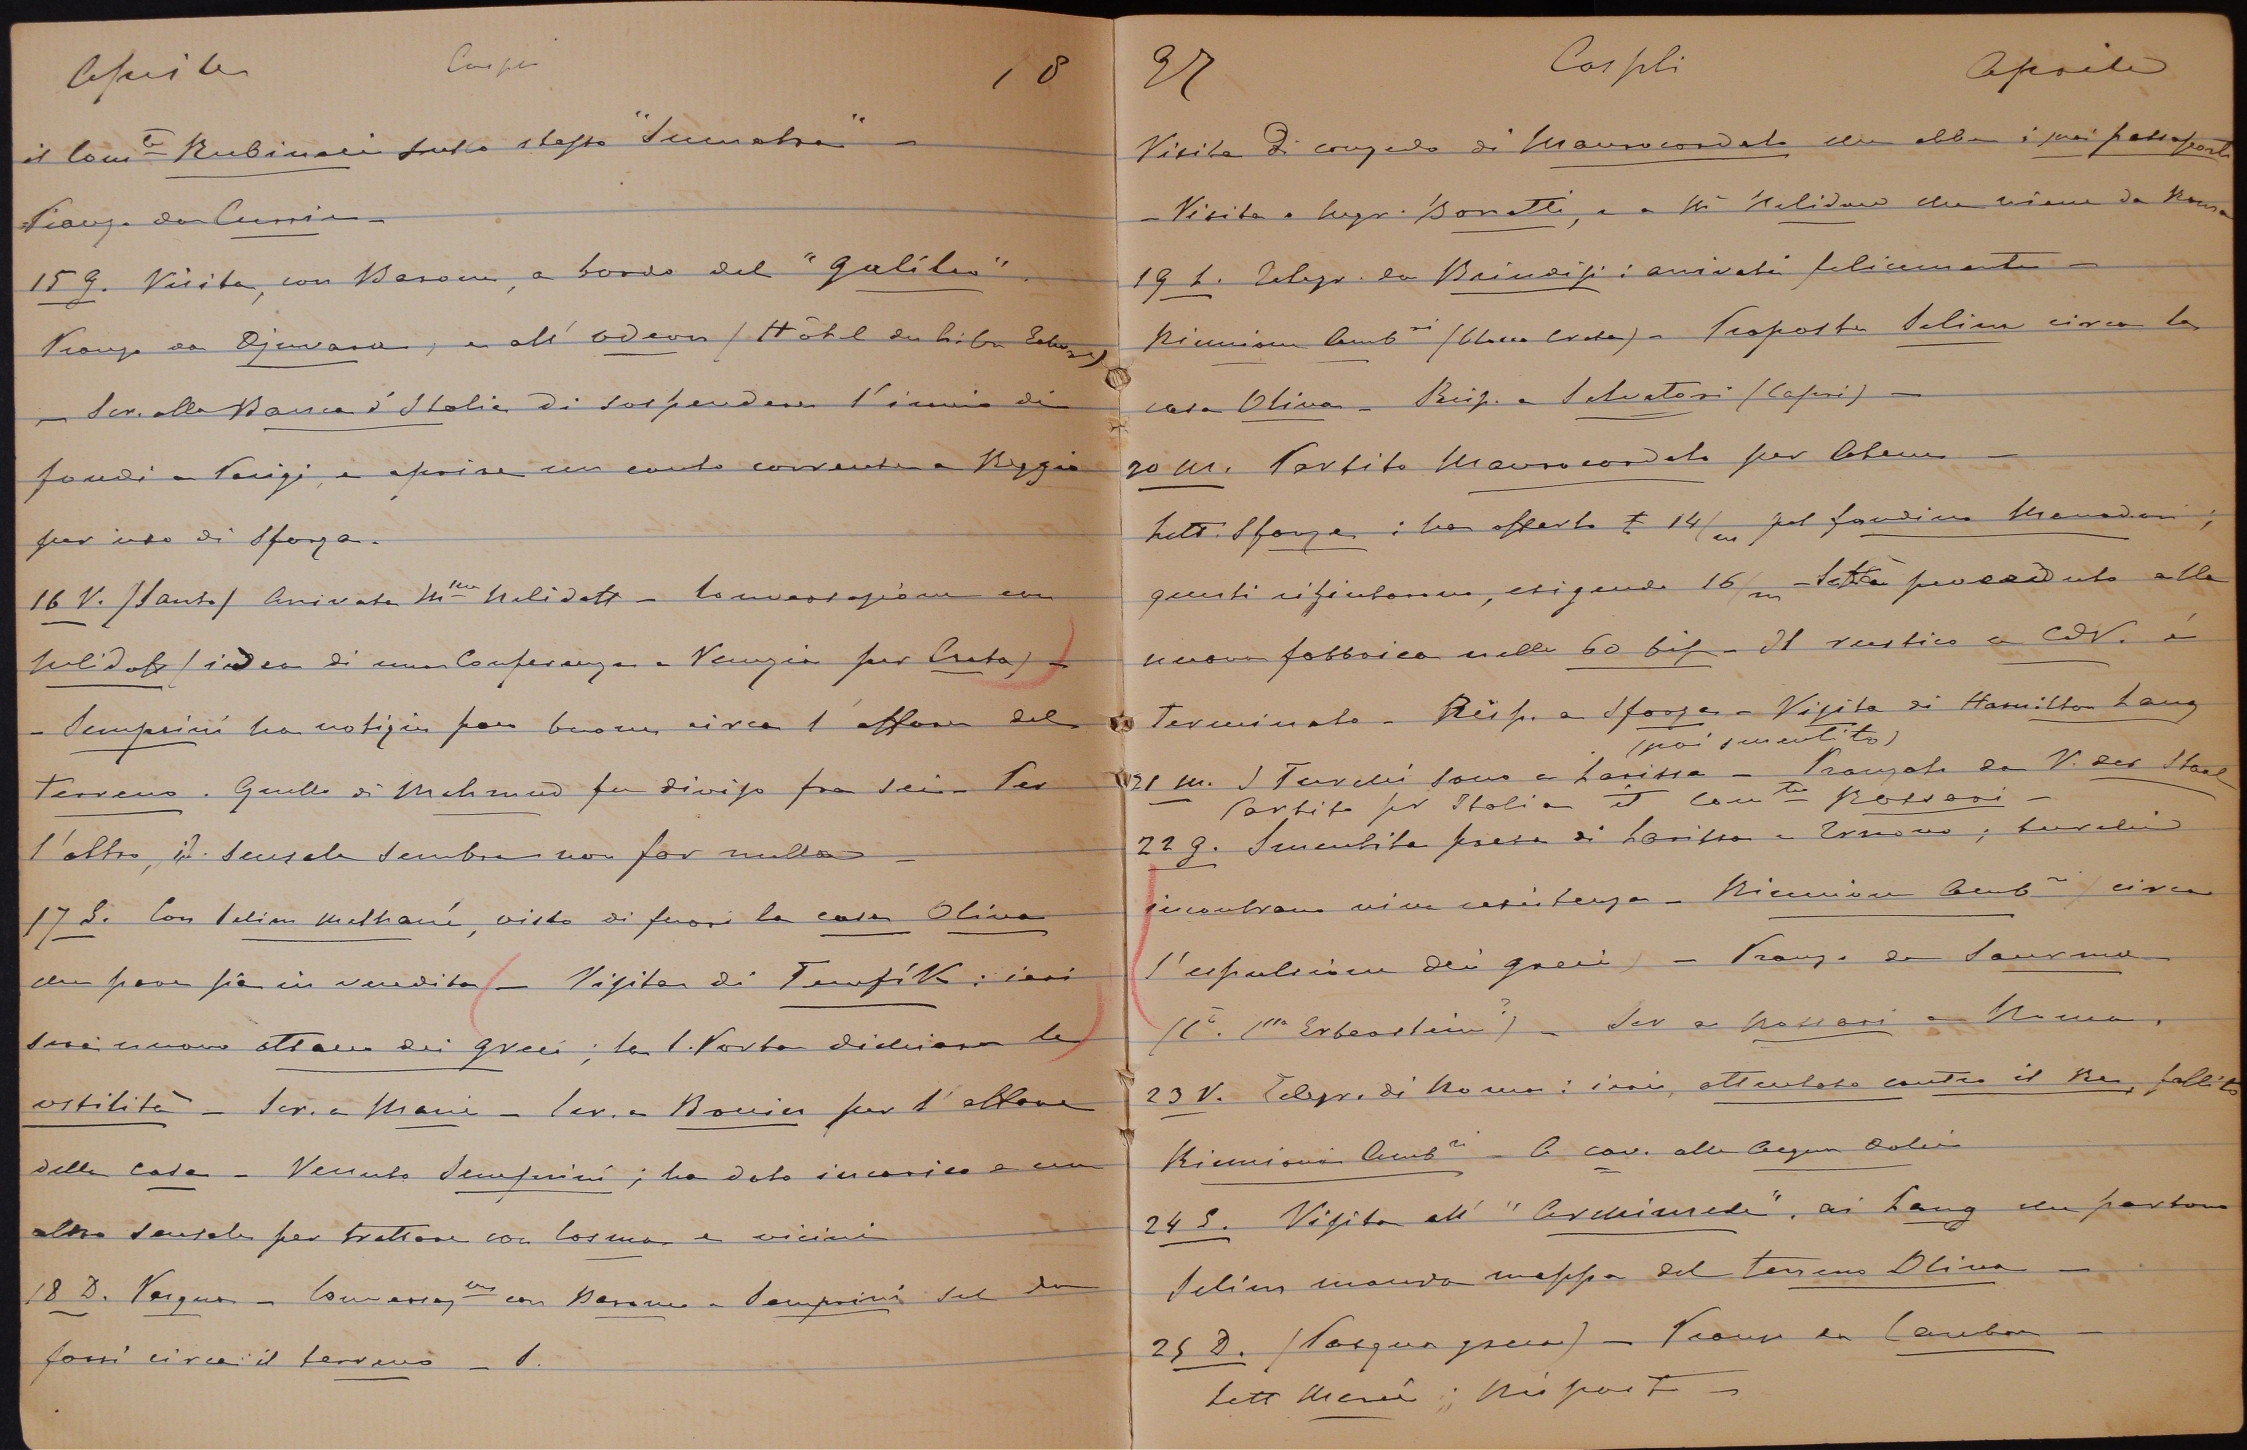 Aprile 18
il Com.te Rubinacci sullo stesso "Sumatra" –
Pranzo da Currie –
15 G. Visita, con Barone, a bordo del "Galileo".
Pranzo da Djuvara, e all'Odeon (Hôtel du
– Scr. alla Banca d'Italia di sospendere l'invio di
fondi a Parigi, e aprire un conto corrente a Reggio
per uso di Sforza.
16 V. (Santo) Arrivata Mme Nelidoff – Conversazione con
Nelidoff (idea di una Conferenza a Venezia per Creta) –
– Semprini ha notizie poco buone circa l'affare del
terreno. Quello di Mahmud fu diviso fra sei – Per
l'altro, il sensale sembra non far nulla –
17 S. Con Selim Melhamé, visto di fuori la casa Oliva
che pare sia in vendita – Visita di Tewfik: ieri
sera nuovo attacco dei greci; la S. Porta dichiara le
ostilità – Scr. a Marie – Scr. a Bouier per l'affare
della casa – Venuto Semprini; ha dato incarico a un
altro sensale per trattare con Cosma e vicini
18 D. Pasqua – Conversaz.ne con Barone e Semprini sul da
farsi circa il terreno – S.
97 Cospli Aprile
Visita di congedo di Maurocordato che ebbe i suoi passaporti
– Visita a Mgr. Bonetti, e a Mr Nelidow che viene da Roma
19 L. Telegr. da Brindisi: arrivati felicemente –
Riunione Amb.ri (blocco Creta) – Proposta Selim circa la
casa Oliva – Risp. a Salvatori (Capri) –
20 M. Partito Maurocordato per Atene –
Lett. Sforza: ha offerto £ 14/m pel fondino Menadori;
questi rifiutarono, esigendo 16/m – Sarà proceduto alla
nuova fabbrica nelle 60 bis – Il rustico a CdV. è
terminato – Risp. a Sforza – Visita di Hamilton Lang
(poi smentito)
21 M. I Turchi sono a Larissa – Pranzato da V. der Stael
Partito per Italia il Com.te Rossari –
22 G. Smentita presa di Larissa e Tirnovo; turchi
incontrano viva resistenza – Riunione Amb.ri (circa
l'espulsione dei greci) – Pranzo da Saurma
– Scr. a Rossari a Roma.
23 V. Telegr. di Roma: ieri, attentato contro il Re, fallito
Riunione Amb.ri – A cav. alle Acque Dolci
24 S. Visita all'"Archimede", ai Lang che partono
Selim manda mappa del terreno Oliva –
25 D. (Pasqua greca) – Pranzo da Cambon –
Lett. Marie; Rispost –